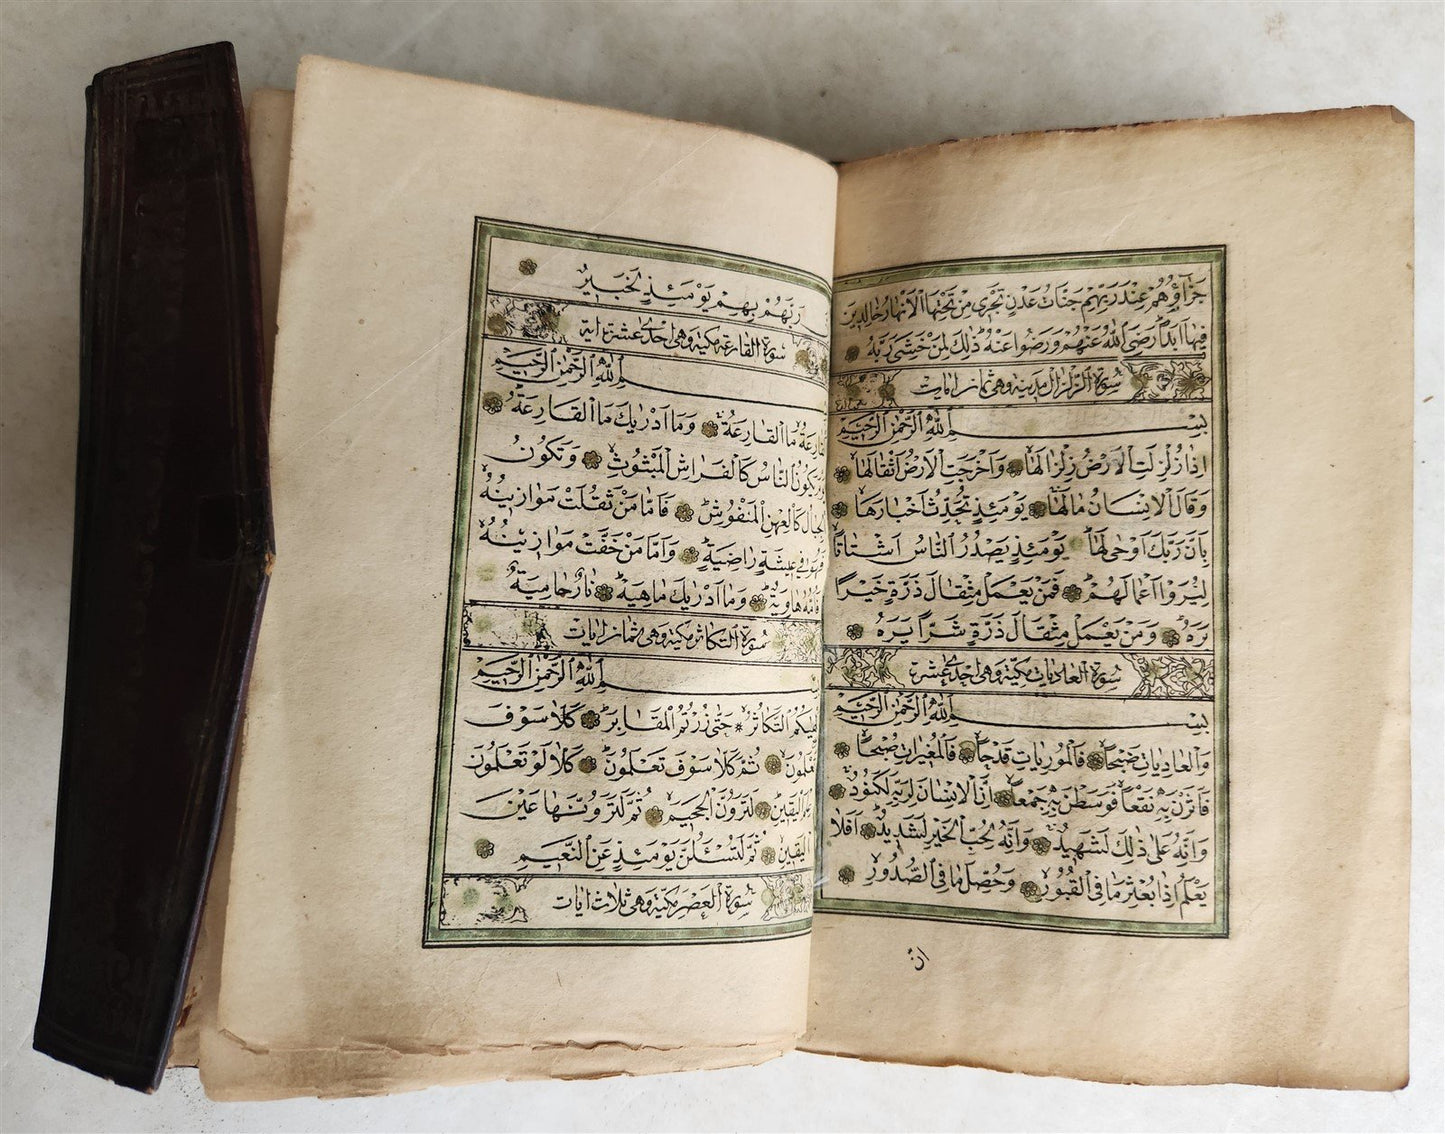 جَزَآؤُهُمْ عِنْدَ رَبِّهِمْ جَنَّاتُ عَدْنٍ تَجْرٖى مِنْ تَحْتِهَا الْاَنْهَارُ خَالِدٖينَ
فٖيهَا اَبَدًا رَضِىَ اللهُ عَنْهُمْ وَرَضُوا عَنْهُ ذٰلِكَ لِمَنْ خَشِىَ رَبَّهُ
سورة الزلزال مدنية وهى ثمان ايات
بِسْمِ اللهِ الرَّحْمٰنِ الرَّحٖيمِ
اِذَا زُلْزِلَتِ الْاَرْضُ زِلْزَالَهَا وَاَخْرَجَتِ الْاَرْضُ اَثْقَالَهَا
وَقَالَ الْاِنْسَانُ مَا لَهَا يَوْمَئِذٍ تُحَدِّثُ اَخْبَارَهَا
بِاَنَّ رَبَّكَ اَوْحٰى لَهَا يَوْمَئِذٍ يَصْدُرُ النَّاسُ اَشْتَاتًا
لِيُرَوْا اَعْمَالَهُمْ فَمَنْ يَعْمَلْ مِثْقَالَ ذَرَّةٍ خَيْرًا
يَرَهُ وَمَنْ يَعْمَلْ مِثْقَالَ ذَرَّةٍ شَرًّا يَرَهُ
سورة العاديات مكية وهى احدى عشرة
بِسْمِ اللهِ الرَّحْمٰنِ الرَّحٖيمِ
وَالْعَادِيَاتِ ضَبْحًا فَالْمُورِيَاتِ قَدْحًا فَالْمُغٖيرَاتِ صُبْحًا
فَاَثَرْنَ بِهٖ نَقْعًا فَوَسَطْنَ بِهٖ جَمْعًا اِنَّ الْاِنْسَانَ لِرَبِّهٖ لَكَنُودٌ
وَاِنَّهُ عَلٰى ذٰلِكَ لَشَهٖيدٌ وَاِنَّهُ لِحُبِّ الْخَيْرِ لَشَدٖيدٌ اَفَلَا
يَعْلَمُ اِذَا بُعْثِرَ مَا فِى الْقُبُورِ وَحُصِّلَ مَا فِى الصُّدُورِ
انّ
رَبَّهُمْ بِهِمْ يَوْمَئِذٍ لَخَبٖيرٌ
سورة القارعة مكية وهى احدى عشرة اية
اللهِ الرَّحْمٰنِ الرَّحٖيمِ
مَا الْقَارِعَةُ وَمَا اَدْرٰيكَ مَا الْقَارِعَةُ
يَكُونُ النَّاسُ كَالْفَرَاشِ الْمَبْثُوثِ وَتَكُونُ
كَالْعِهْنِ الْمَنْفُوشِ فَاَمَّا مَنْ ثَقُلَتْ مَوَازٖينُهُ
فٖى عٖيشَةٍ رَاضِيَةٍ وَاَمَّا مَنْ خَفَّتْ مَوَازٖينُهُ
فَاُمُّهُ هَاوِيَةٌ وَمَا اَدْرٰيكَ مَا هِيَهْ نَارٌ حَامِيَةٌ
سورة التكاثر مكية وهى ثمان ايات
اللهِ الرَّحْمٰنِ الرَّحٖيمِ
التَّكَاثُرُ حَتّٰى زُرْتُمُ الْمَقَابِرَ كَلَّا سَوْفَ
تَعْلَمُونَ ثُمَّ كَلَّا سَوْفَ تَعْلَمُونَ كَلَّا لَوْ تَعْلَمُونَ
عِلْمَ الْيَقٖينِ لَتَرَوُنَّ الْجَحٖيمَ ثُمَّ لَتَرَوُنَّهَا عَيْنَ
الْيَقٖينِ ثُمَّ لَتُسْئَلُنَّ يَوْمَئِذٍ عَنِ النَّعٖيمِ
سورة العصر مكية وهى ثلاث ايات